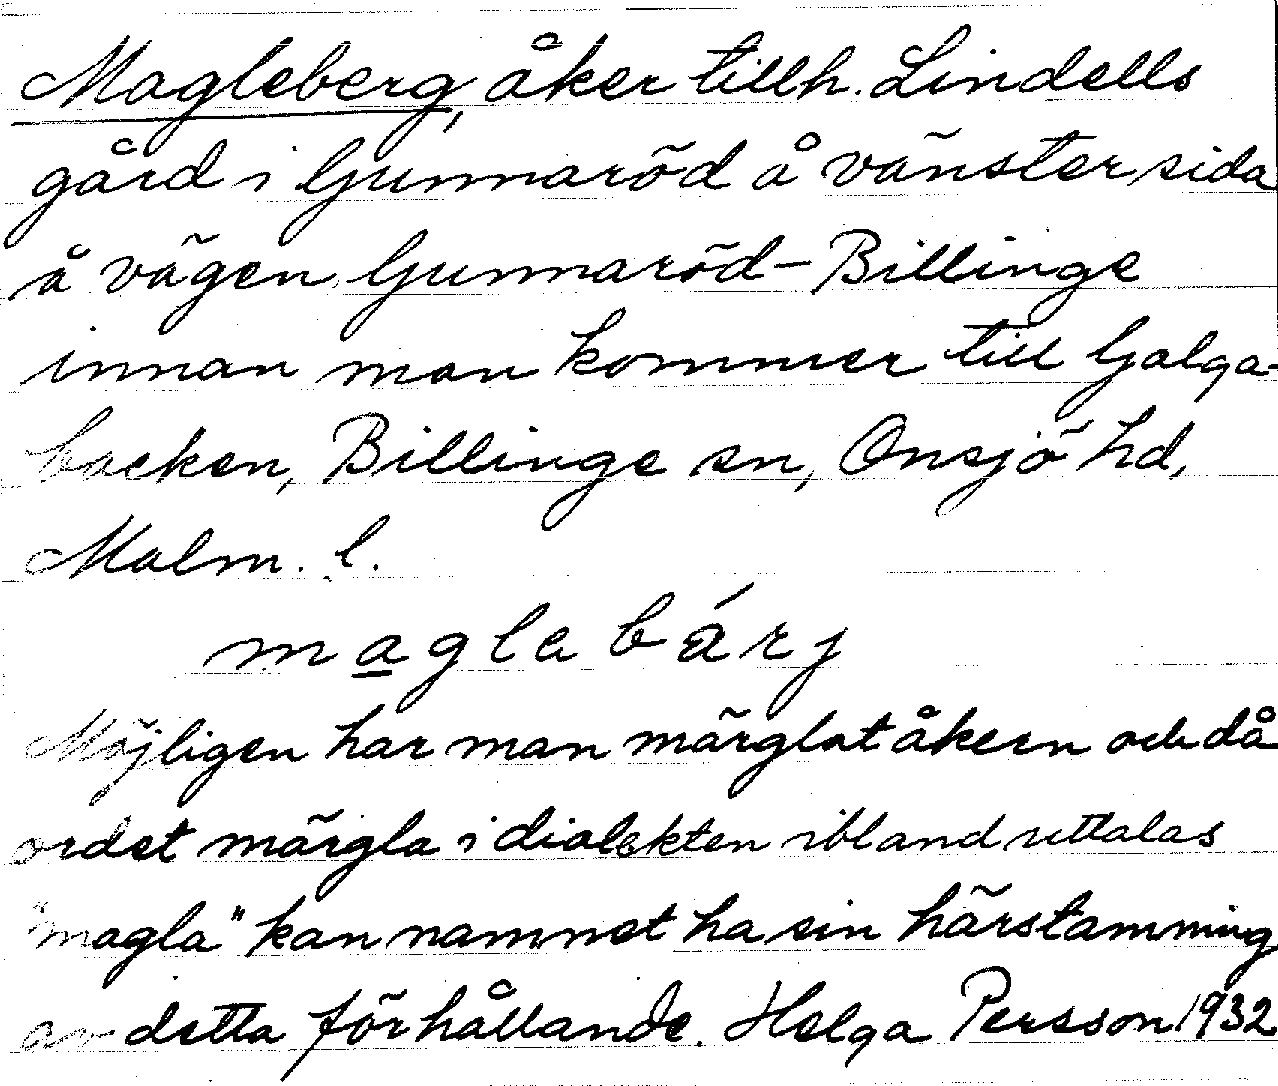 Magleberg, åker tillh. Lindells
gård i Gunnaröd å vänster sida
å vägen Gunnaröd–Billinge
innan man kommer till Galga-
backen, Billinge sn, Onsjö hd,
Malm. l.
maglebárj
Möjligen har man märglat åkern och då
ordet märgla i dialekten ibland uttalas
"magla" kan namnet ha sin härstamning
av detta förhållande. Helga Persson 1932